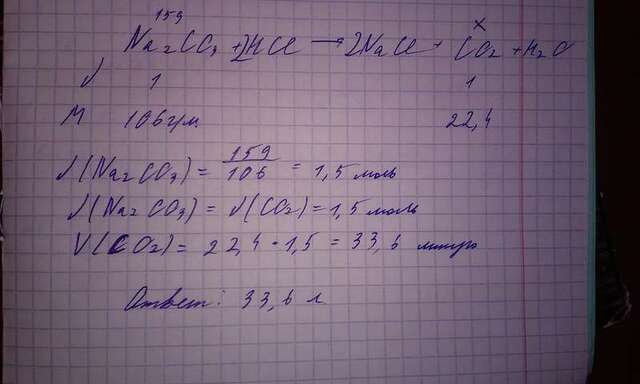 159 x
Na2CO3 + 2HCl → 2NaCl + CO2 + H2O
ν 1 1
M 106 г/м 22,4
ν(Na2CO3) = 159/106 = 1,5 моль
ν(Na2CO3) = ν(CO2) = 1,5 моль
V(CO2) = 22,4 · 1,5 = 33,6 литро
Ответ: 33,6 л